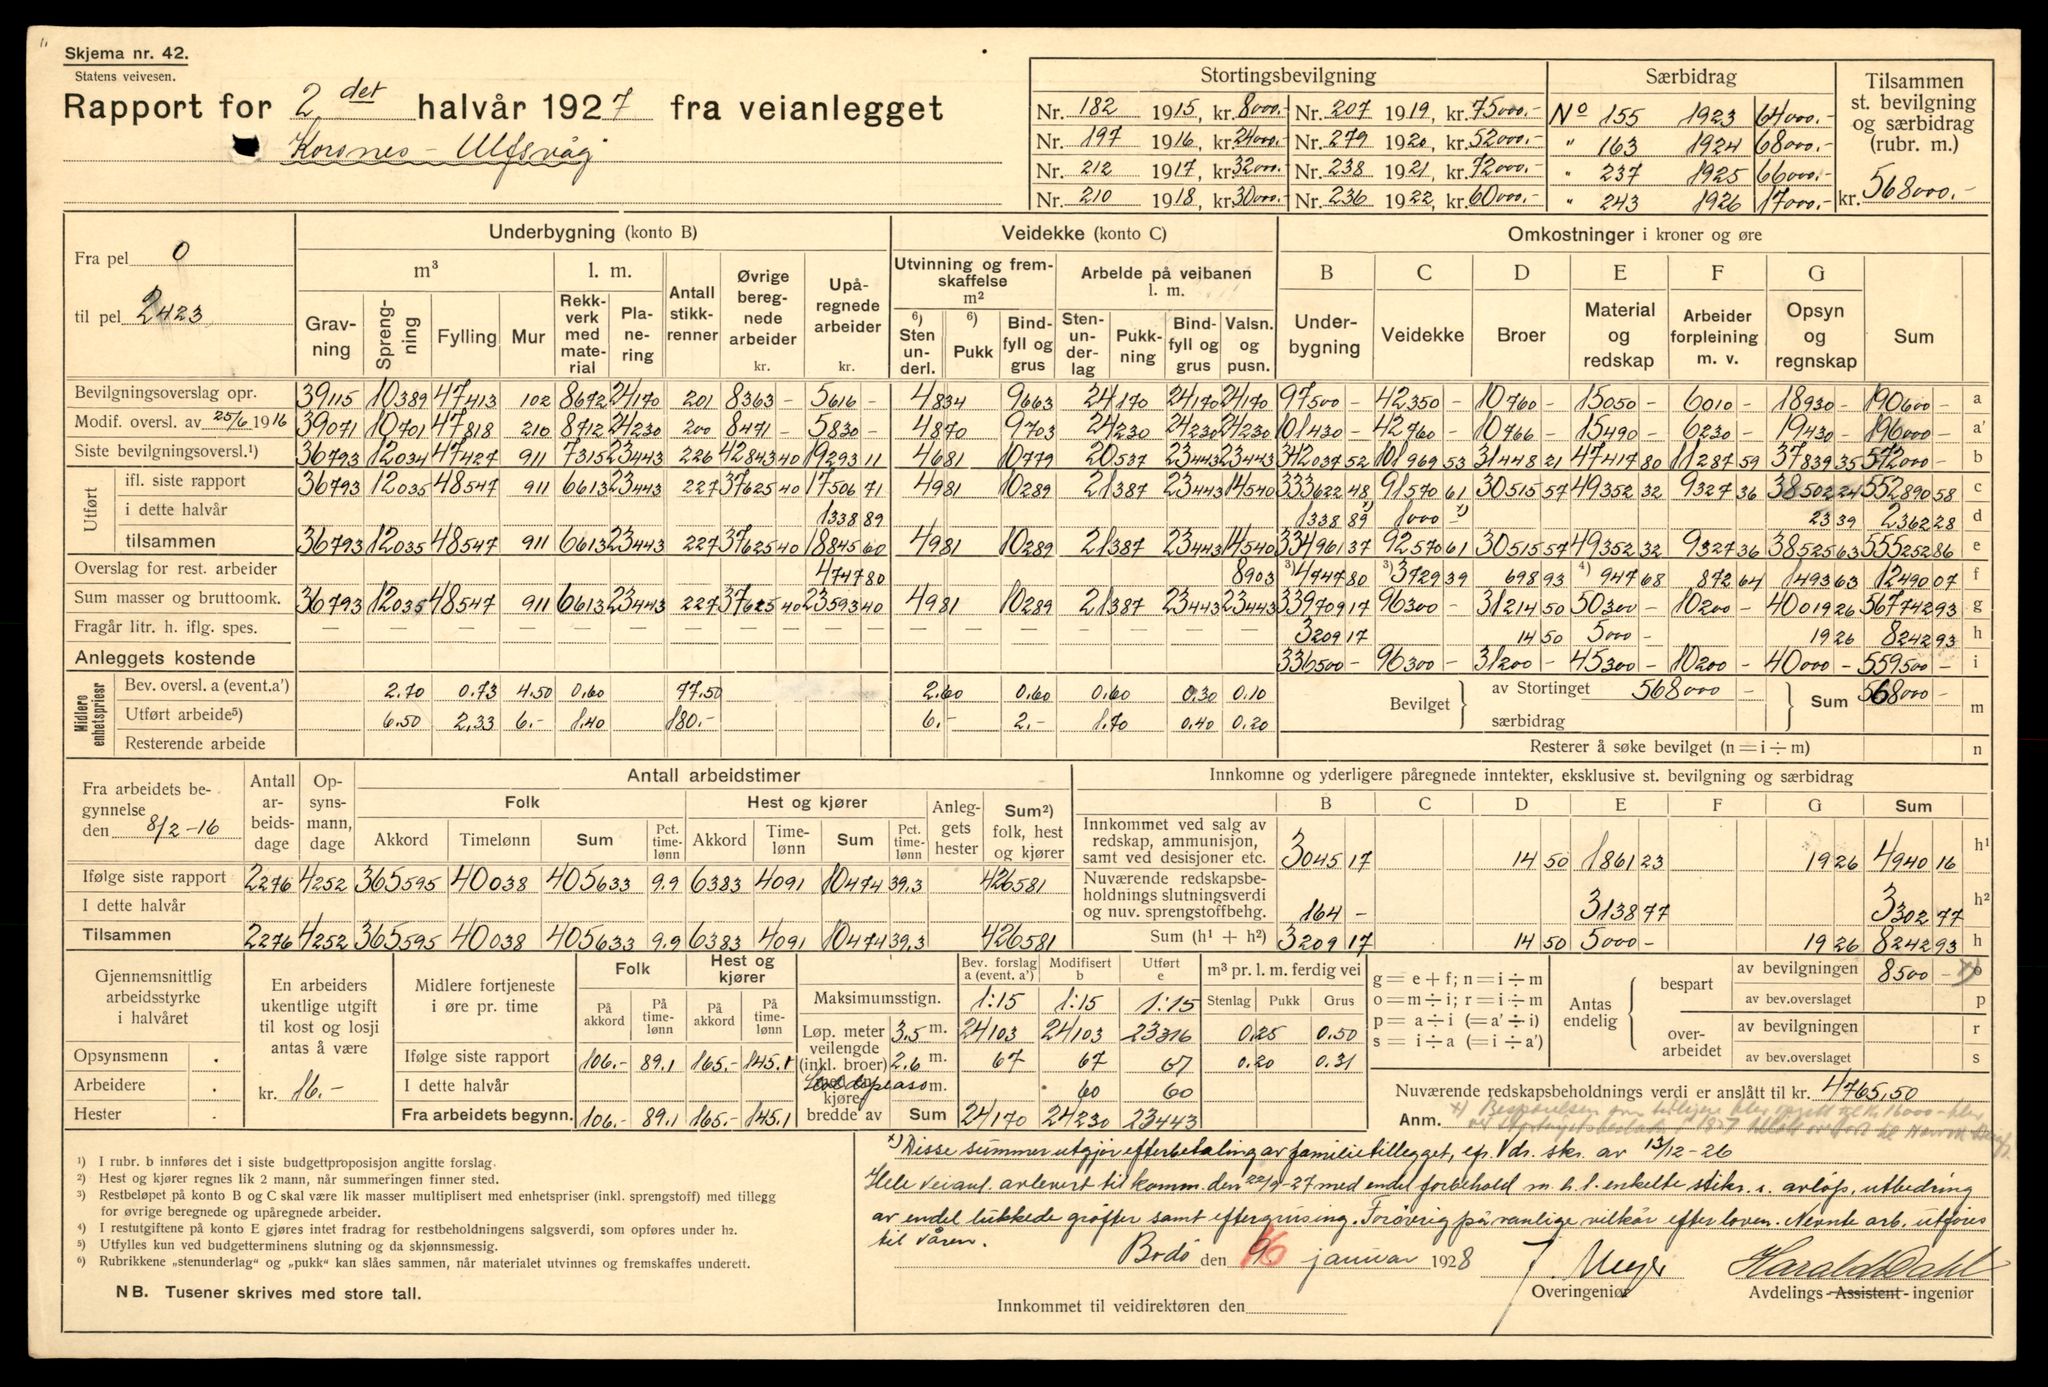 Skjema nr. 42.
Statens veivesen.
Rapport for 2 det halvår 1927 fra veianlegget
Korsnes - Ulfsvåg
Stortingsbevilgning
Nr. 182 1915, kr. 8000.- Nr. 207 1919, kr. 75000.-
Nr. 197 1916, kr. 24000.- Nr. 279 1920, kr. 52000.-
Nr. 212 1917, kr. 32000.- Nr. 238 1921, kr. 72000.-
Nr. 210 1918, kr. 30000.- Nr. 236 1922, kr. 60000.-
Særbidrag
No 155 1923 64000.-
" 163 1924 68000.-
" 237 1925 66000.-
" 243 1926 17000.-
Tilsammen
st. bevilgning
og særbidrag
(rubr. m.)
kr. 568000.-
Fra pel 0
til pel 2423
Underbygning (konto B)
m³ l. m.
Gravning Sprengning Fylling Mur Rekkverk med material Planering Antall stikkrenner Øvrige beregnede arbeider kr. Upåregnede arbeider kr.
Veidekke (konto C)
Utvinning og fremskaffelse m² Arbeide på veibanen l. m.
6) Sten underl. 6) Pukk Bindfyll og grus Stenunderlag Pukkning Bindfyll og grus Valsn. og pusn.
Omkostninger i kroner og øre
B C D E F G
Underbygning Veidekke Broer Material og redskap Arbeider forpleining m. v. Opsyn og regnskap Sum
Bevilgningsoverslag opr. 39115 10389 47413 102 8672 24170 201 8363 - 5616 - 4834 9663 24170 24170 24170 97500 - 42350 - 10760 - 15050 - 6010 - 18930 - 190600 - a
Modif. oversl. av 25/6 1916 39071 10701 47818 210 8712 24230 200 8471 - 5830 - 4870 9703 24230 24230 24230 101430 - 42760 - 10766 - 15490 - 6230 - 19430 - 196000 - a'
Siste bevilgningsoversl.¹) 36793 12034 47427 911 7315 23443 226 42843 40 19293 11 4681 10779 20537 23443 23443 342037 52 101969 53 31448 21 47417 80 11287 59 37839 35 572000 - b
Utført
ifl. siste rapport 36793 12035 48547 911 6613 23443 227 37625 40 17506 71 4981 10289 21387 23443 14540 333622 48 91570 61 30515 57 49352 32 9327 36 38502 24 552890 58 c
i dette halvår 1338 89 1338 89 1000 - 23 39 2362 28 d
tilsammen 36793 12035 48547 911 6613 23443 227 37625 40 18845 60 4981 10289 21387 23443 14540 334961 37 92570 61 30515 57 49352 32 9327 36 38525 63 555252 86 e
Overslag for rest. arbeider 4747 80 8903 3) 4747 80 3) 3729 39 698 93 4) 947 68 872 64 1493 63 12490 07 f
Sum masser og bruttoomk. 36793 12035 48547 911 6613 23443 227 37625 40 23593 40 4981 10289 21387 23443 23443 339709 17 96300 - 31214 50 50300 - 10200 - 40019 26 567742 93 g
Fragår litr. h. iflg. spes. 3209 17 14 50 5000 - 19 26 8242 93 h
Anleggets kostende 336500 - 96300 - 31200 - 45300 - 10200 - 40000 - 559500 - i
Midlere enhetspriesr
Bev. oversl. a (event. a') 2.70 0.73 4.50 0.60 77.50 2.60 0.60 0.60 0.30 0.10
Utført arbeide⁵) 6.50 2.33 6.- 1.40 180.- 6.- 2.- 1.70 0.40 0.20
Resterende arbeide
Bevilget av Stortinget 568000 - særbidrag Sum 568000 - m
Resterer å søke bevilget (n = i ÷ m) n
Fra arbeidets begynnelse
den 8/2-16
Antall arbeidsdage Opsynsmann, dage
Antall arbeidstimer
Folk Hest og kjører Anleggets hester Sum²) folk, hest og kjører
Akkord Timelønn Sum Pct. timelønn Akkord Timelønn Sum Pct. timelønn
Ifølge siste rapport 2276 4252 365595 40038 405633 9.9 6383 4091 10474 39.3 426581
I dette halvår
Tilsammen 2276 4252 365595 40038 405633 9.9 6383 4091 10474 39.3 426581
Innkomne og yderligere påregnede inntekter, eksklusive st. bevilgning og særbidrag
B C D E F G Sum
Innkommet ved salg av redskap, ammunisjon, samt ved desisjoner etc. 3045 17 14 50 1861 23 19 26 4940 16 h¹
Nuværende redskapsbeholdnings slutningsverdi og nuv. sprengstoffbehg. 164 - 3138 77 3302 77 h²
Sum (h¹ + h²) 3209 17 14 50 5000 - 19 26 8242 93 h
Gjennemsnittlig arbeidsstyrke i halvåret
Opsynsmenn .
Arbeidere .
Hester .
En arbeiders ukentlige utgift til kost og losji antas å være
kr. 16.-
Midlere fortjeneste i øre pr. time
Folk Hest og kjører
På akkord På timelønn På akkord På timelønn
Ifølge siste rapport 106.- 89.1 165.- 145.1
I dette halvår
Fra arbeidets begynn. 106.- 89.1 165.- 145.1
Bev. forslag a (event. a') Modifisert b Utført e
Maksimumsstign. 1:15 1:15 1:15
Løp. meter veilengde (inkl. broer) kjøre bredde av
3.5 m. 24103 24103 23316
2.6 m. 67 67 67
m. 60 60
Sum 24170 24230 23443
m³ pr. l. m. ferdig vei
Stenlag Pukk Grus
0.25 0.50
0.20 0.31
g = e + f; n = i ÷ m
o = m ÷ i; r = i ÷ m
p = a ÷ i (= a' ÷ i)
s = i ÷ a (= i ÷ a')
Antas endelig
bespart av bevilgningen 8500 - o
av bev.overslaget p
overarbeidet av bevilgningen r
av bev.overslaget s
Nuværende redskapsbeholdnings verdi er anslått til kr. 4765,50
Anm.
x) Disse summer utgjør efterbetaling av familietillegget, efr. Vdr. skr. av 13/12-26
Hele veianl. avlevert til komm. den 22/9-27 med endel forbehold m. h. t. enkelte stikr. s. avløp, utbedring
av endel lukkede grøfter samt eftergrusing. Forøvrig på vanlige vilkår efter loven. Nevnte arb. utføres
til våren.
Bodø den 16 januar 1928
Overingeniør
Harald Dahl
Avdelings-Assistent-ingeniør
Innkommet til veidirektøren den
¹) I rubr. b innføres det i siste budgettproposisjon angitte forslag.
²) Hest og kjører regnes lik 2 mann, når summeringen finner sted.
³) Restbeløpet på konto B og C skal være lik masser multiplisert med enhetspriser (inkl. sprengstoff) med tillegg
for øvrige beregnede og upåregnede arbeider.
⁴) I restutgiftene på konto E gjøres intet fradrag for restbeholdningens salgsverdi, som opføres under h2.
⁵) Utfylles kun ved budgetterminens slutning og da skjønnsmessig.
⁶) Rubrikkene „stenunderlag" og „pukk" kan slåes sammen, når materialet utvinnes og fremskaffes underett.
NB. Tusener skrives med store tall.